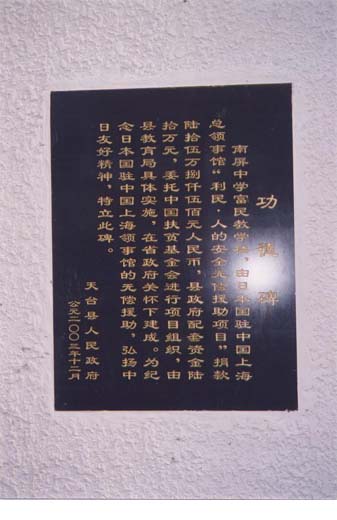 功德碑
南屏中学富民教学楼，由日本国驻中国上海
总领事馆“利民·人的安全无偿援助项目”捐款
陆拾伍万捌仟伍佰元人民币，县政府配套资金陆
拾万元，委托中国扶贫基金会进行项目组织，由
县教育局具体实施，在省政府关怀下建成。为纪
念日本国驻中国上海领事馆的无偿援助，弘扬中
日友好精神，特立此碑。
天台县人民政府
公元二〇〇三年十二月